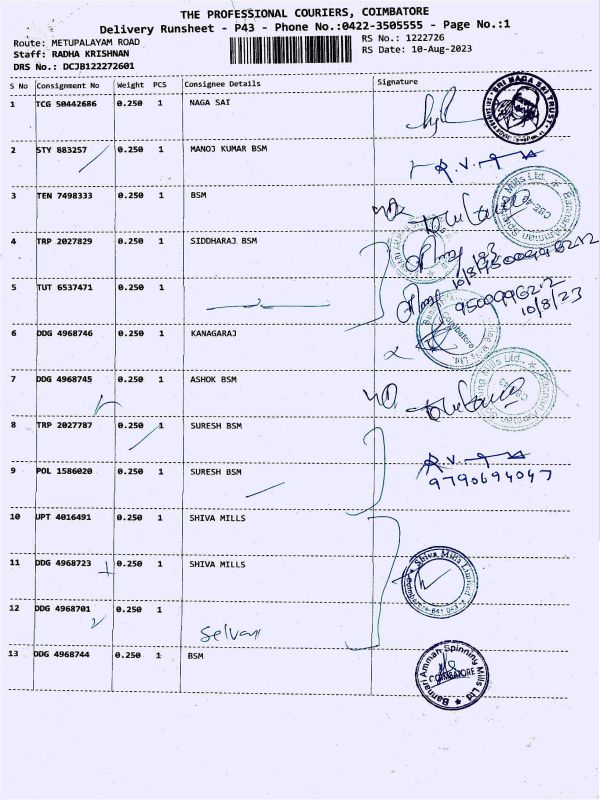 THE PROFESSIONAL COURIERS, COIMBATORE
Delivery Runsheet - P43 - Phone No.:0422-3505555 - Page No.:1
Route: METUPALAYAM ROAD
RS No.: 1222726
Staff: RADHA KRISHNAN
RS Date: 10-Aug-2023
DRS No.: DCJB122272601
S No Consignment No Weight PCS Consignee Details Signature
1 TCG 50442686 0.250 1 NAGA SAI
SRI NAGA SAI TRUST
2 STY 883257 0.250 1 MANOJ KUMAR BSM
R.V.
3 TEN 7498333 0.250 1 BSM
4 TRP 2027829 0.250 1 SIDDHARAJ BSM
10/8/
5 TUT 6537471 0.250 1
9500996212
10/8/23
6 DDG 4968746 0.250 1 KANAGARAJ
Coimbatore
7 DDG 4968745 0.250 1 ASHOK BSM
8 TRP 2027787 0.250 1 SURESH BSM
R.V.
9 POL 1586020 0.250 1 SURESH BSM
9790694047
10 UPT 4016491 0.250 1 SHIVA MILLS
11 DDG 4968723 0.250 1 SHIVA MILLS
Shiva Mills Limited
12 DDG 4968701 0.250 1
Selvan
13 DDG 4968744 0.250 1 BSM
Bannari Amman Spinning Mills Ltd
COIMBATORE